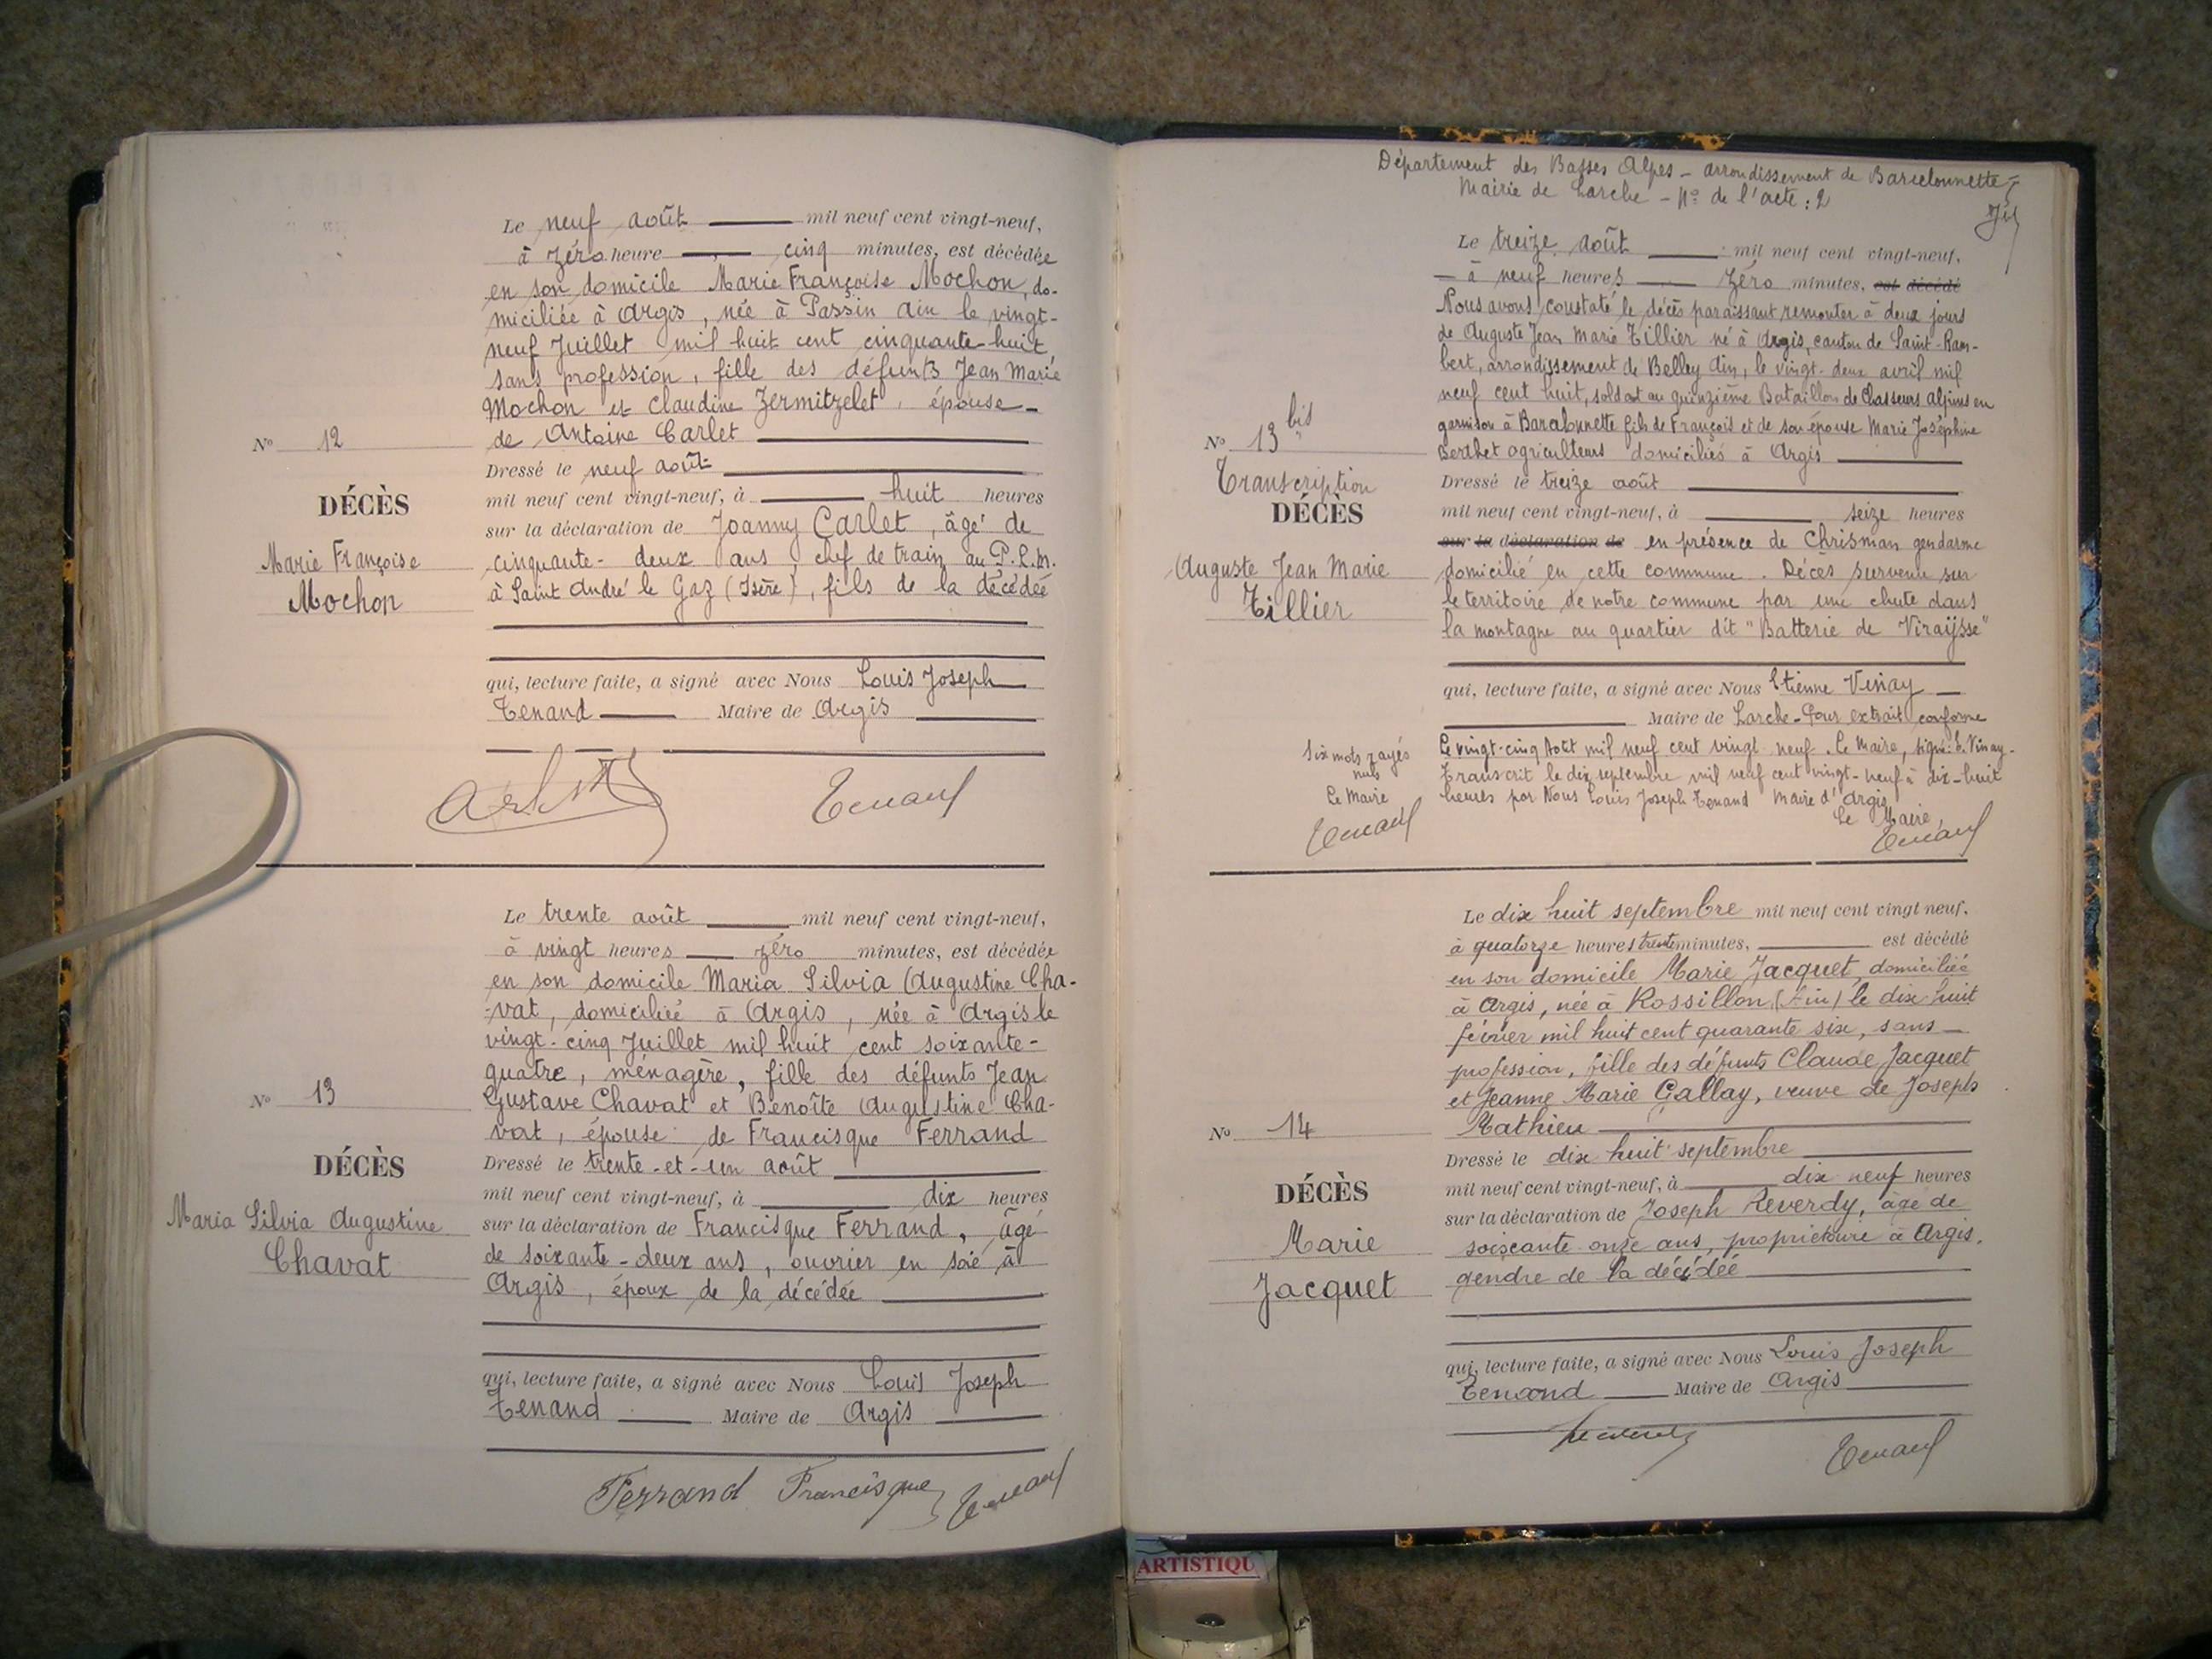 Le neuf août mil neuf cent vingt-neuf,
à zéro heure cinq minutes, est décédée
en son domicile Marie Françoise Mochon, do-
miciliée à Argis, née à Passin Ain le vingt-
neuf Juillet mil huit cent cinquante-huit,
sans profession, fille des défunts Jean Marie
Mochon et Claudine Zermitzelet, épouse
de Antoine Carlet
N° 12
Dressé le neuf août
mil neuf cent vingt-neuf, à huit heures
DÉCÈS
sur la déclaration de Joanny Carlet, âgé de
cinquante-deux ans, chef de train au P.L.M.
Marie Françoise
à Saint André le Gaz (Isère), fils de la décédée
Mochon
qui, lecture faite, a signé avec Nous Louis Joseph
Tenand Maire de Argis
Tenand
Le trente août mil neuf cent vingt-neuf,
à vingt heures zéro minutes, est décédée
en son domicile Maria Silvia Augustine Cha-
-vat, domiciliée à Argis, née à Argis le
vingt-cinq Juillet mil huit cent soixante-
quatre, ménagère, fille des défunts Jean
Gustave Chavat et Benoîte Augustine Cha-
vat, épouse de Francisque Ferrand
N° 13
Dressé le trente-et-un août
DÉCÈS
mil neuf cent vingt-neuf, à dix heures
Maria Silvia Augustine
Chavat
sur la déclaration de Francisque Ferrand, âgé
de soixante-deux ans, ouvrier en soie à
Argis, époux de la décédée
qui, lecture faite, a signé avec Nous Louis Joseph
Tenand Maire de Argis
Ferrand Francisque Tenand
Département des Basses Alpes - arrondissement de Barcelonnette
Mairie de Larche - N° de l'acte : 2
Le treize août mil neuf cent vingt-neuf,
à neuf heures zéro minutes, est décédé
Nous avons constaté le décès paraissant remonter à deux jours
de Auguste Jean Marie Tillier né à Argis, canton de Saint-Ram-
bert, arrondissement de Belley Ain, le vingt-deux avril mil
neuf cent huit, soldat au quinzième Bataillon de Chasseurs Alpins en
garnison à Barcelonnette fils de François et de son épouse Marie Joséphine
Berthet agriculteurs domiciliés à Argis
N° 13 bis
Transcription
DÉCÈS
Auguste Jean Marie
Tillier
Dressé le treize août
mil neuf cent vingt-neuf, à seize heures
sur la déclaration de en présence de Chrisman gendarme
domicilié en cette commune. Décès survenu sur
le territoire de notre commune par une chute dans
la montagne au quartier dit "Batterie de Viraÿsse"
qui, lecture faite, a signé avec Nous Etienne Vinay
Maire de Larche - Pour extrait conforme
Le vingt-cinq Août mil neuf cent vingt neuf. Le Maire, signé: E. Vinay.
Transcrit le dix septembre mil neuf cent vingt-neuf à dix-huit
heures par Nous Louis Joseph Tenand Maire d'Argis
Le Maire,
Tenand
Six mots rayés
nuls
Le Maire
Tenand
Le dix huit septembre mil neuf cent vingt neuf,
à quatorze heures trente minutes, est décédé
en son domicile Marie Jacquet, domiciliée
à Argis, née à Rossillon (Ain) le dix huit
février mil huit cent quarante six, sans
profession, fille des défunts Claude Jacquet
et Jeanne Marie Gallay, veuve de Joseph
Mathieu
N° 14
DÉCÈS
Marie
Jacquet
Dressé le dix huit septembre
mil neuf cent vingt-neuf, à dix neuf heures
sur la déclaration de Joseph Reverdy, âgé de
soixante onze ans, propriétaire à Argis,
gendre de la décédée
qui, lecture faite, a signé avec Nous Louis Joseph
Tenand Maire de Argis
Reverdy Tenand
ARTISTIQU